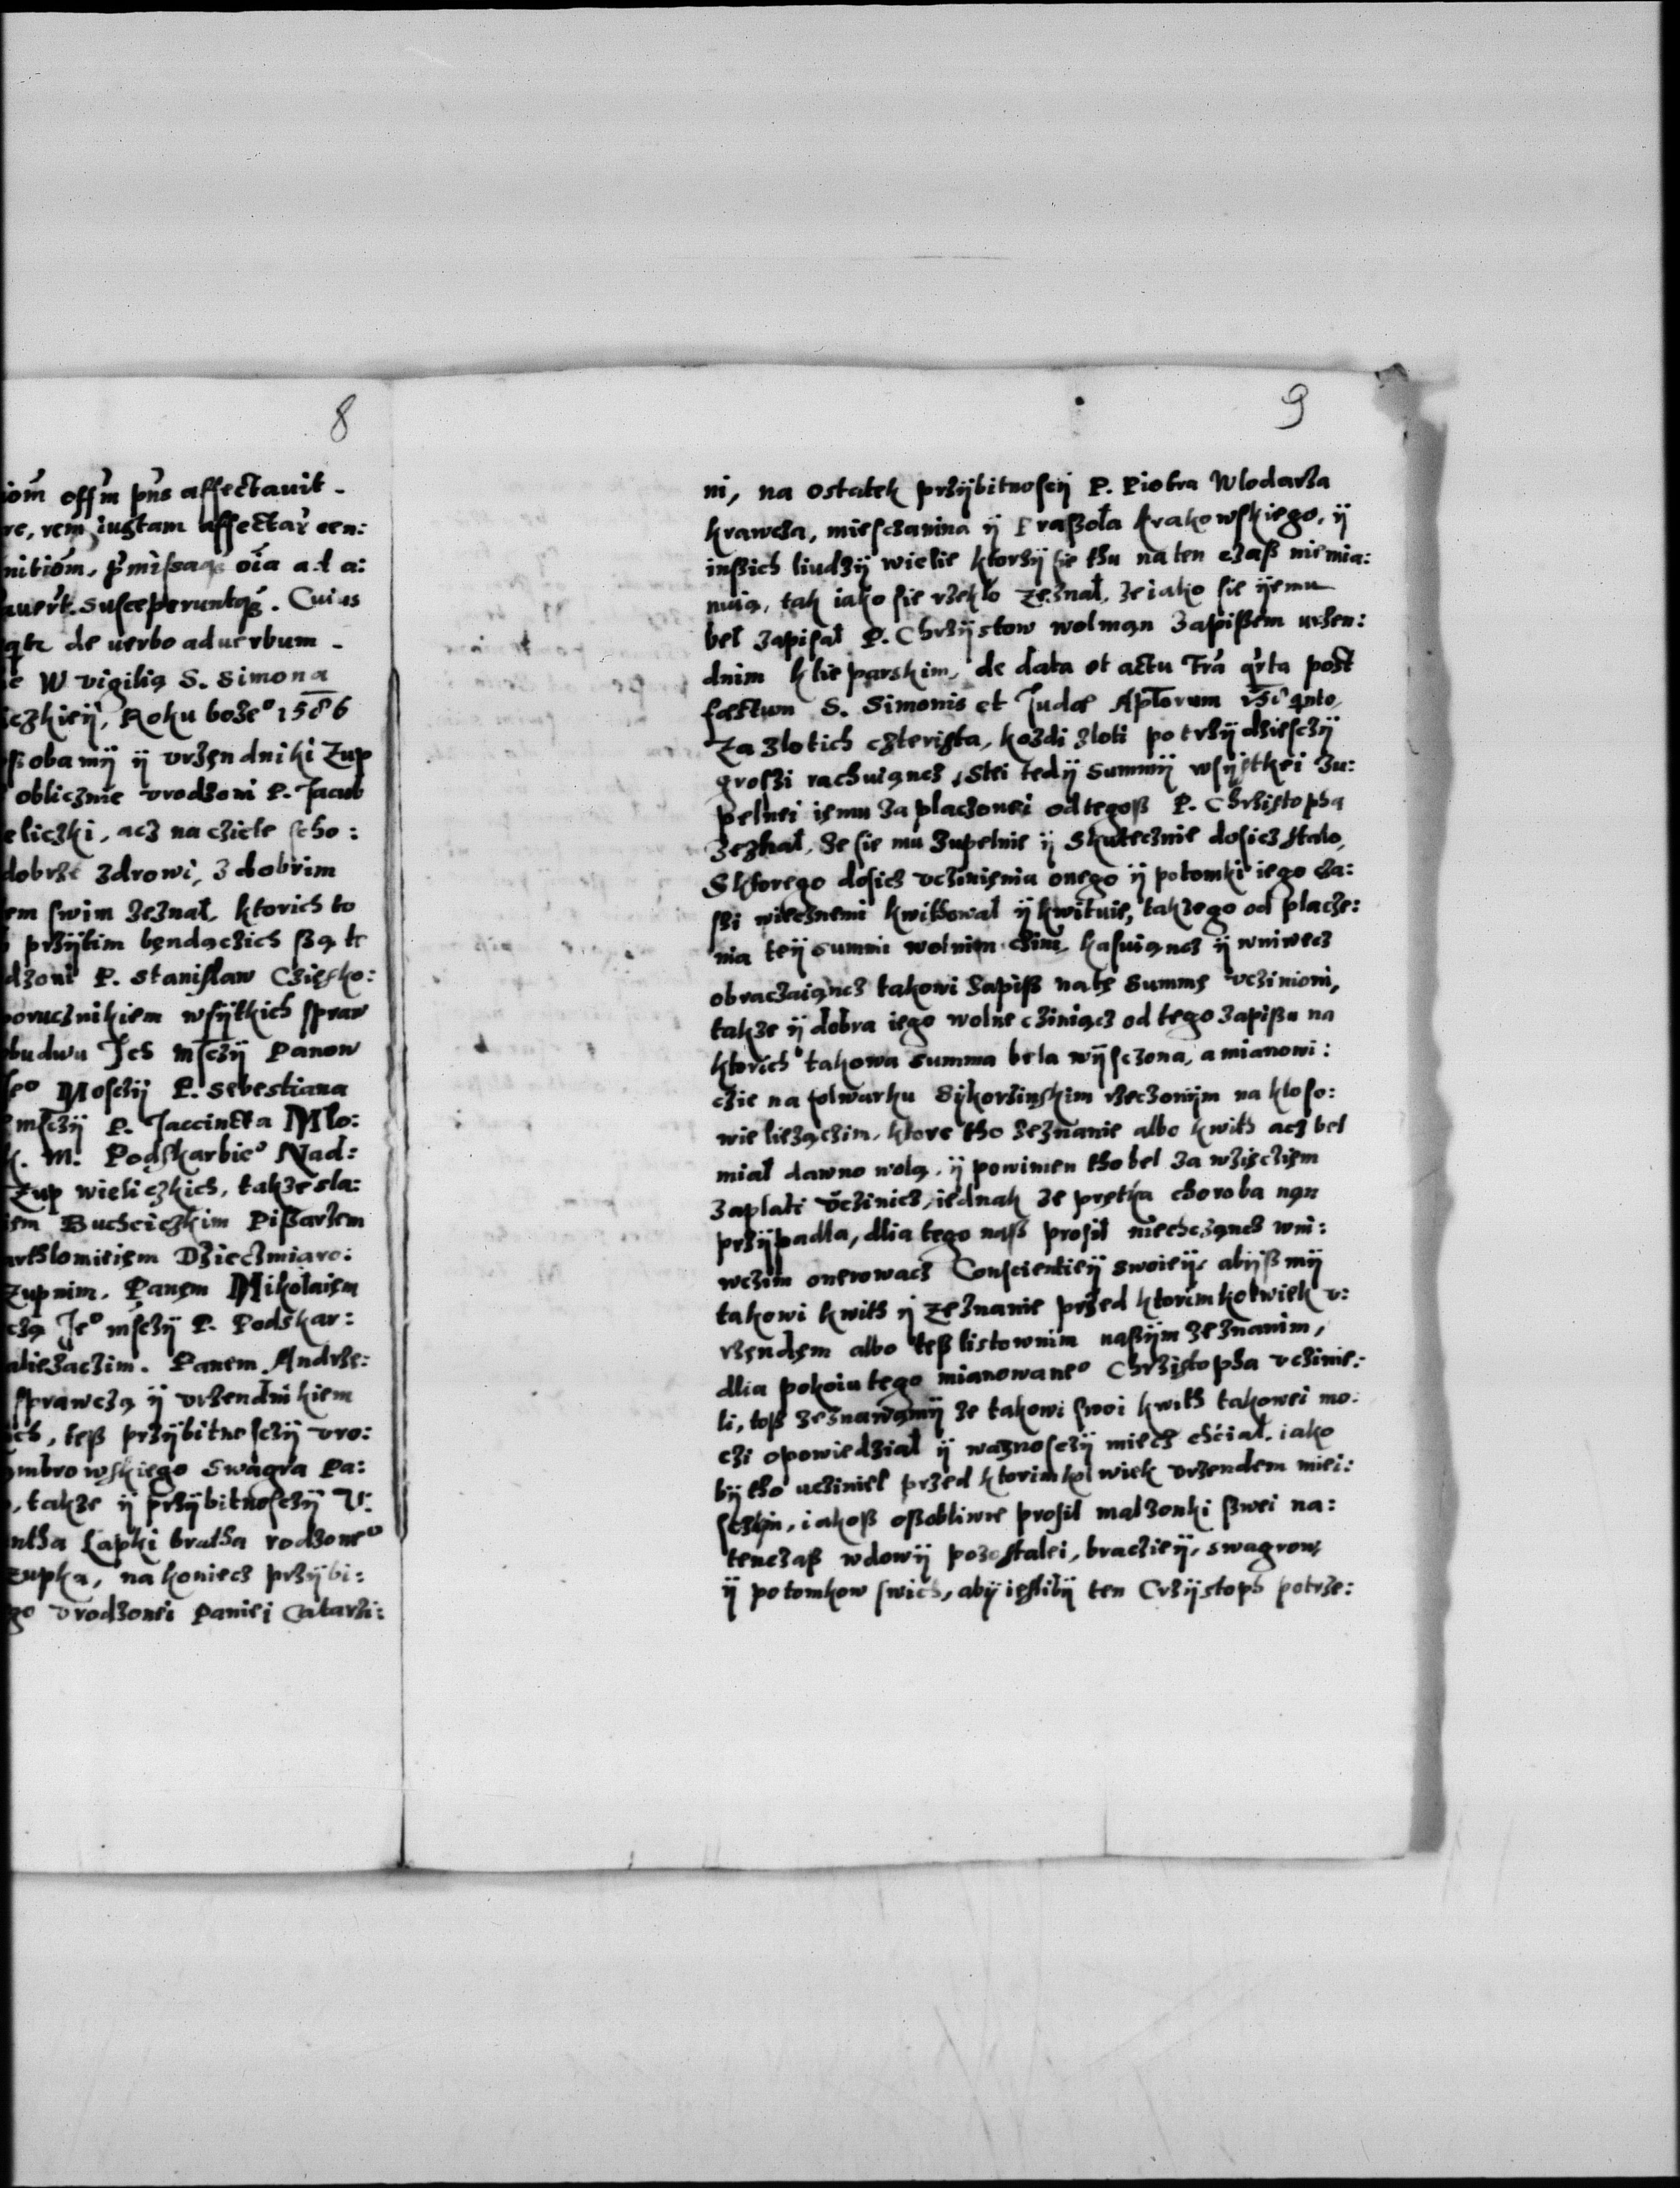 8
iom̃ offm̃ pñs affectauit.
re, rem iustam affectar̃ cen:
nitiom̃, p̃missaqꝫ oĩa ad a:
Susceperuntqꝫ. Cuius
de uerbo aduerbum.
e W vigilią S. Simona
czkieÿ, Roku boze° 1586
sobamÿ ÿ vrzęndniki Zup
oblicznie vrodzoni P. Jacub
eliczki, acz na cziele scho:
dobrze zdrowi, z dobrim
em swim zeznał, ktorich to
przÿtim będączich są te
dzoni P. Stanislaw
porucznikiem wsÿtkich spraw
budwu Ich mſczÿ Panow
Ie° Mosczÿ P. Sebestiana
mſczÿ P. Jaccinctа Mlo:
k. M. Podskarbie° Nad:
Zup wieliczkich, takze sla:
iem Pißarzem
arthlomieięm
zupnim. Panęm Mikolaięm
czą Je° mſczÿ P. Podskar:
aliezaczim. Panem Andrze:
sprawczą ÿ vrzendnikiem
ich, teß przÿbitnosczÿ vro:
ąmbrowskiego Swagra Pa:
, takze ÿ przÿbitnosczÿ V:
ntha Łapki bratha rodzone°
zupka, na koniecz przÿbi:
go vrodzonei Paniei Catarzi:
9
ni, na ostatek przÿbitnoscÿ P. Piotra Wlodarza
krawcza, miesczanina ÿ Praßoła krakowskiego, ÿ
inßich liudzÿ wielie ktorzÿ sie thu na ten czaß nie mia:
nuią, tak iako sie rzekło zeznał, ze iako sie ÿemu
beł zapisał P. Chrzÿstow wolman zapißem urzen:
dnim klieparskim, de data et actu Fr̃a qr̃ta post
festum S. Simonis et Judæ Aptorum
Za zlotich czterista, kozdi zloti po trzÿdziesczÿ
groszi rachuiąncz, Stei tedÿ Summÿ wsÿstkei zu:
pełnei iemu zaplaczonei od tegoß P. Chrzistopha
zeznał, ze sie mu zupelnie ÿ Skutecznie dosicz stalo,
Sktorego dosicz vczinięnia onego ÿ potomki iego cza:
szi wiecznemi kwithowal ÿ kwituie, tak zego od placze:
nia teÿ summi wolnim czini, kasuiąncz ÿ wniwecz
obraczaiąncz takowi Zapiß natę Summę vczinioni,
takze ÿ dobra iego wolne cziniącz od tego zapißu na
ktorich takowa summa bela wÿsczona, a mianowi:
czie na folwarku Sÿkorzinskim rzeczonÿm na kloso:
wie liezączim, ktore tho zeznanie albo kwith acz bel
miał dawno wolą, ÿ powinien tho bel za wzięcziem
zaplati vczinicz, iednak ze prętka choroba nąn
przÿpadla, dlia tego naß prosil niechcząncz wni:
wczim onerowacz Conscientieÿ swoieÿ, abÿßmÿ
takowi kwith ÿ zeznanie przed ktorimkolwiek v:
rzęndęm albo teß listownim naßÿm zeznanim,
dlia pokoiu tego mianowane° Chrzistopha vczinie:
li, toß zeznawamÿ ze takowi swoi kwith takowei mo:
czi opowiedział ÿ waznosczÿ miecz chciał, iako
bÿ tho uczinieł przed ktorimkolwiek vrzendem miei:
sczkim, iakoß osobliwie prosil malzonki swei na:
tenczaß wdowÿ pozostalei, braczieÿ, swagrow,
ÿ potomkow swich, abÿ iestlibÿ ten Crzÿstoph potrze: